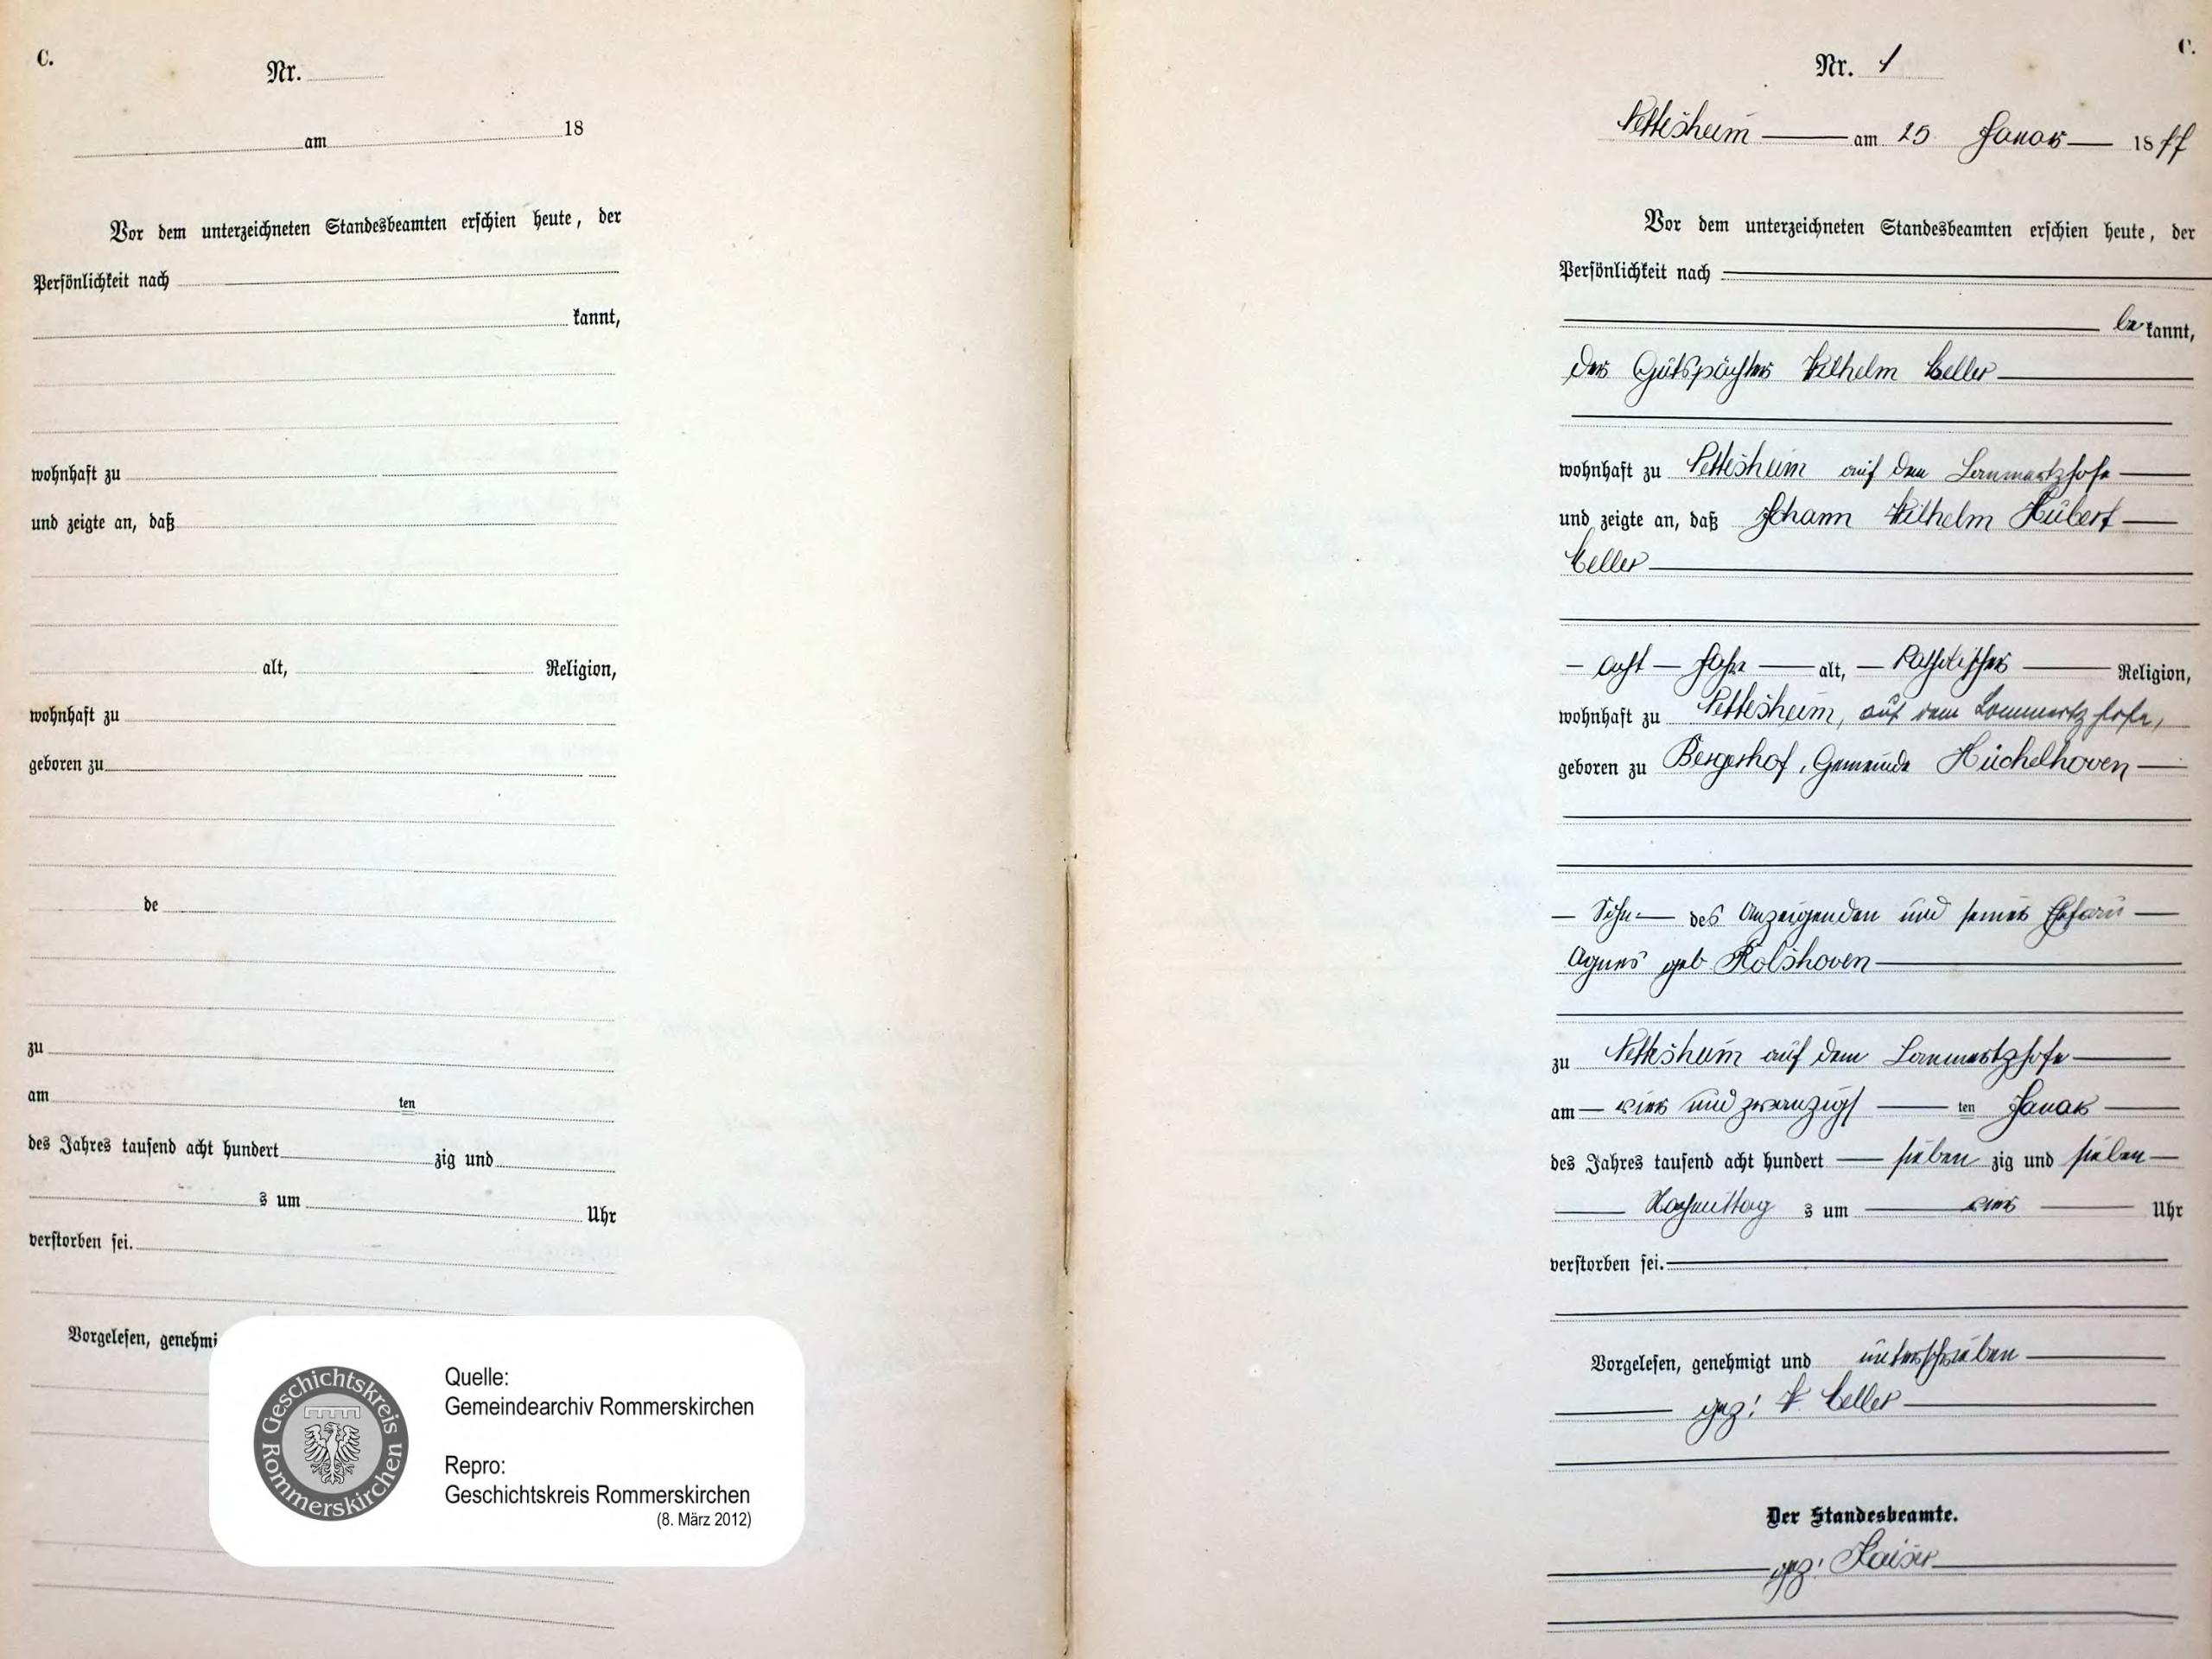 C.
Nr.
am 18
Vor dem unterzeichneten Standesbeamten erschien heute, der
Persönlichkeit nach
kannt,
wohnhaft zu
und zeigte an, daß
alt, Religion,
wohnhaft zu
geboren zu
de
zu
am ten
des Jahres tausend acht hundert zig und
s um Uhr
verstorben sei.
Vorgelesen, genehmi
Quelle:
Gemeindearchiv Rommerskirchen
Repro:
Geschichtskreis Rommerskirchen
(8. März 2012)
Geschichtskreis Rommerskirchen
C.
Nr. 1
Nettesheim am 25 Januar 1877
Vor dem unterzeichneten Standesbeamten erschien heute, der
Persönlichkeit nach
be kannt,
der Gutspächter Wilhelm Celler
wohnhaft zu Nettesheim auf dem Lommertzhofe
und zeigte an, daß Johann Wilhelm Hubert
Celler
acht Jahre alt, katholischer Religion,
wohnhaft zu Nettesheim, auf dem Lommertzhofe,
geboren zu Bergerhof, Gemeinde Hüchelhoven
Sohn des Anzeigenden und seiner Ehefrau
Agnes geb Rolshoven
zu Nettesheim auf dem Lommertzhofe
am vier und zwanzigs ten Januar
des Jahres tausend acht hundert sieben zig und sieben
Nachmittag s um vier Uhr
verstorben sei.
Vorgelesen, genehmigt und unterschrieben
gez: W. Celler
Der Standesbeamte.
gez: Kaiser